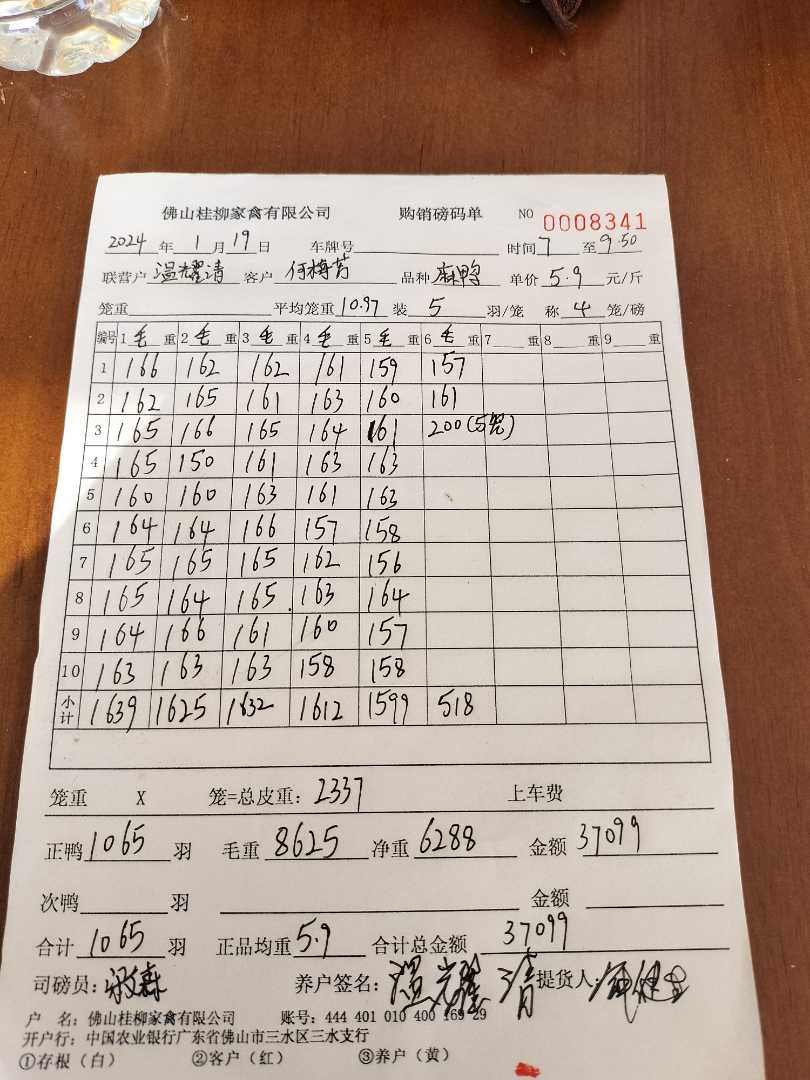 佛山桂柳家禽有限公司 购销磅码单 NO 0008341
2024 年 1 月 19 日 车牌号 时间 7 至 9.50
联营户 温耀清 客户 品种 麻鸭 单价 5.9 元/斤
笼重 平均笼重 10.97 装 5 羽/笼 称 4 笼/磅
编号 1 毛 重 2 毛 重 3 毛 重 4 毛 重 5 毛 重 6 毛 重 7 重 8 重 9 重
1 166 162 162 161 159 157
2 162 165 161 163 160 161
3 165 166 165 164 161 200(5笼)
4 165 150 161 163 163
5 160 160 163 161 163
6 164 164 166 157 158
7 165 165 165 162 156
8 165 164 165 163 164
9 164 166 161 160 157
10 163 163 163 158 158
小计 1639 1625 1632 1612 1599 518
笼重 X 笼=总皮重: 2337 上车费
正鸭 1065 羽 毛重 8625 净重 6288 金额 37099
次鸭 羽 金额
合计 1065 羽 正品均重 5.9 合计总金额 37099
司磅员: 养户签名: 温耀清 提货人:
户 名: 佛山桂柳家禽有限公司 账号: 444 401 010 400 169 29
开户行: 中国农业银行广东省佛山市三水区三水支行
①存根(白) ②客户(红) ③养户(黄)